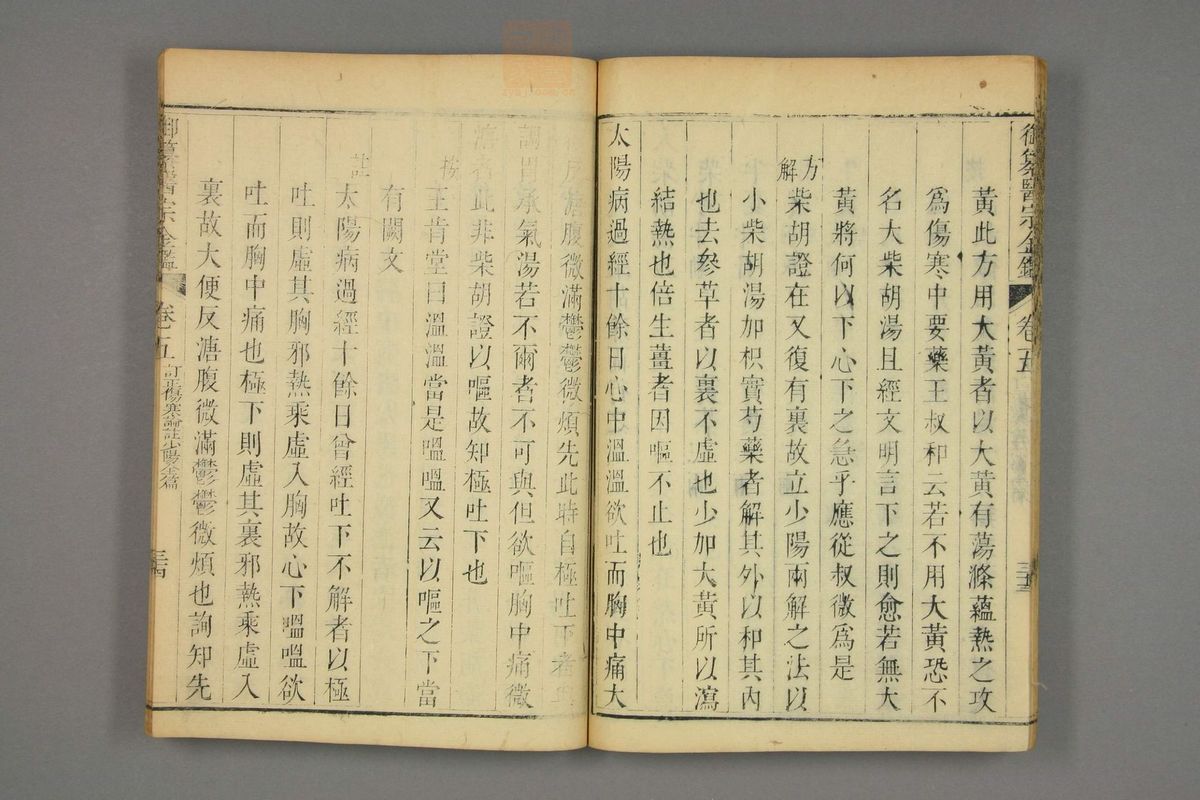 御纂醫宗金鑑 卷五
黃此方用大黃者以大黃有蕩滌蘊熱之攻
爲傷寒中要藥王叔和云若不用大黃恐不
名大柴胡湯且經文明言下之則愈若無大
黃將何以下心下之急乎應從叔微爲是
方解
柴胡證在又復有裏故立少陽兩解之法以
小柴胡湯加枳實芍藥者解其外以和其內
也去參草者以裏不虛也少加大黃所以瀉
結熱也倍生薑者因嘔不止也
太陽病過經十餘日心中溫溫欲吐而胸中痛大
反溏腹微滿鬱鬱微煩先此時自極吐下者與
調胃承氣湯若不爾者不可與但欲嘔胸中痛微
溏者此非柴胡證以嘔故知極吐下也
按
王肯堂曰溫溫當是嗢嗢又云以嘔之下當
有闕文
註
太陽病過經十餘日曾經吐下不解者以極
吐則虛其胸邪熱乘虛入胸故心下嗢嗢欲
吐而胸中痛也極下則虛其裏邪熱乘虛入
裏故大便反溏腹微滿鬱鬱微煩也詢知先
御纂醫宗金鑑 卷五 訂正傷寒論註少陽全篇 三四